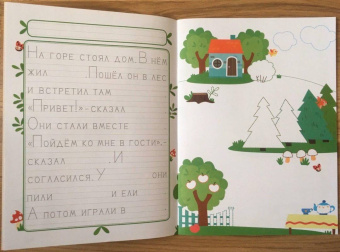 На горе стоял дом. В нём
жил Пошёл он в лес
и встретил там
«Привет!»- сказал
Они стали вместе
«Пойдём ко мне в гости»,-
сказал . И
согласился. У они
пили и ели
А потом играли в